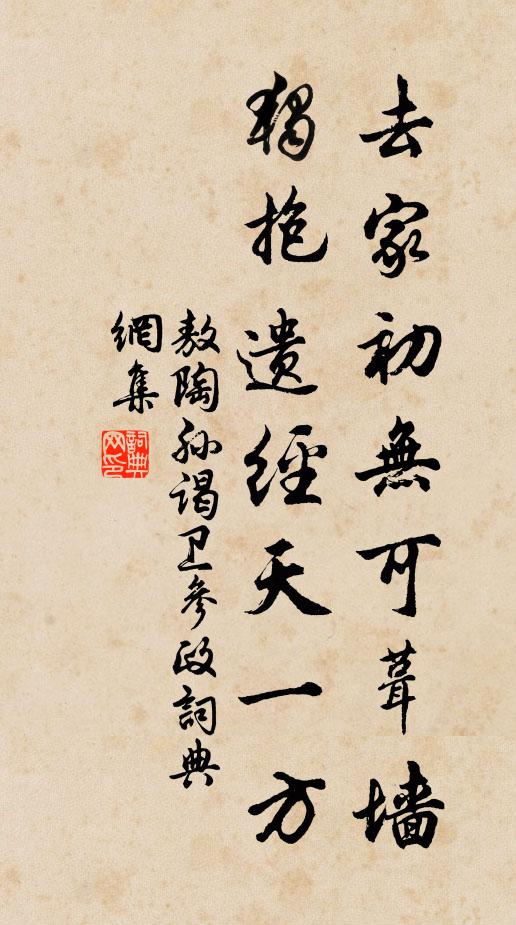 去家初無可葺墙
獨抱遺經天一方
敖陶孙謁卫參政詞典
網集
詞典
网印